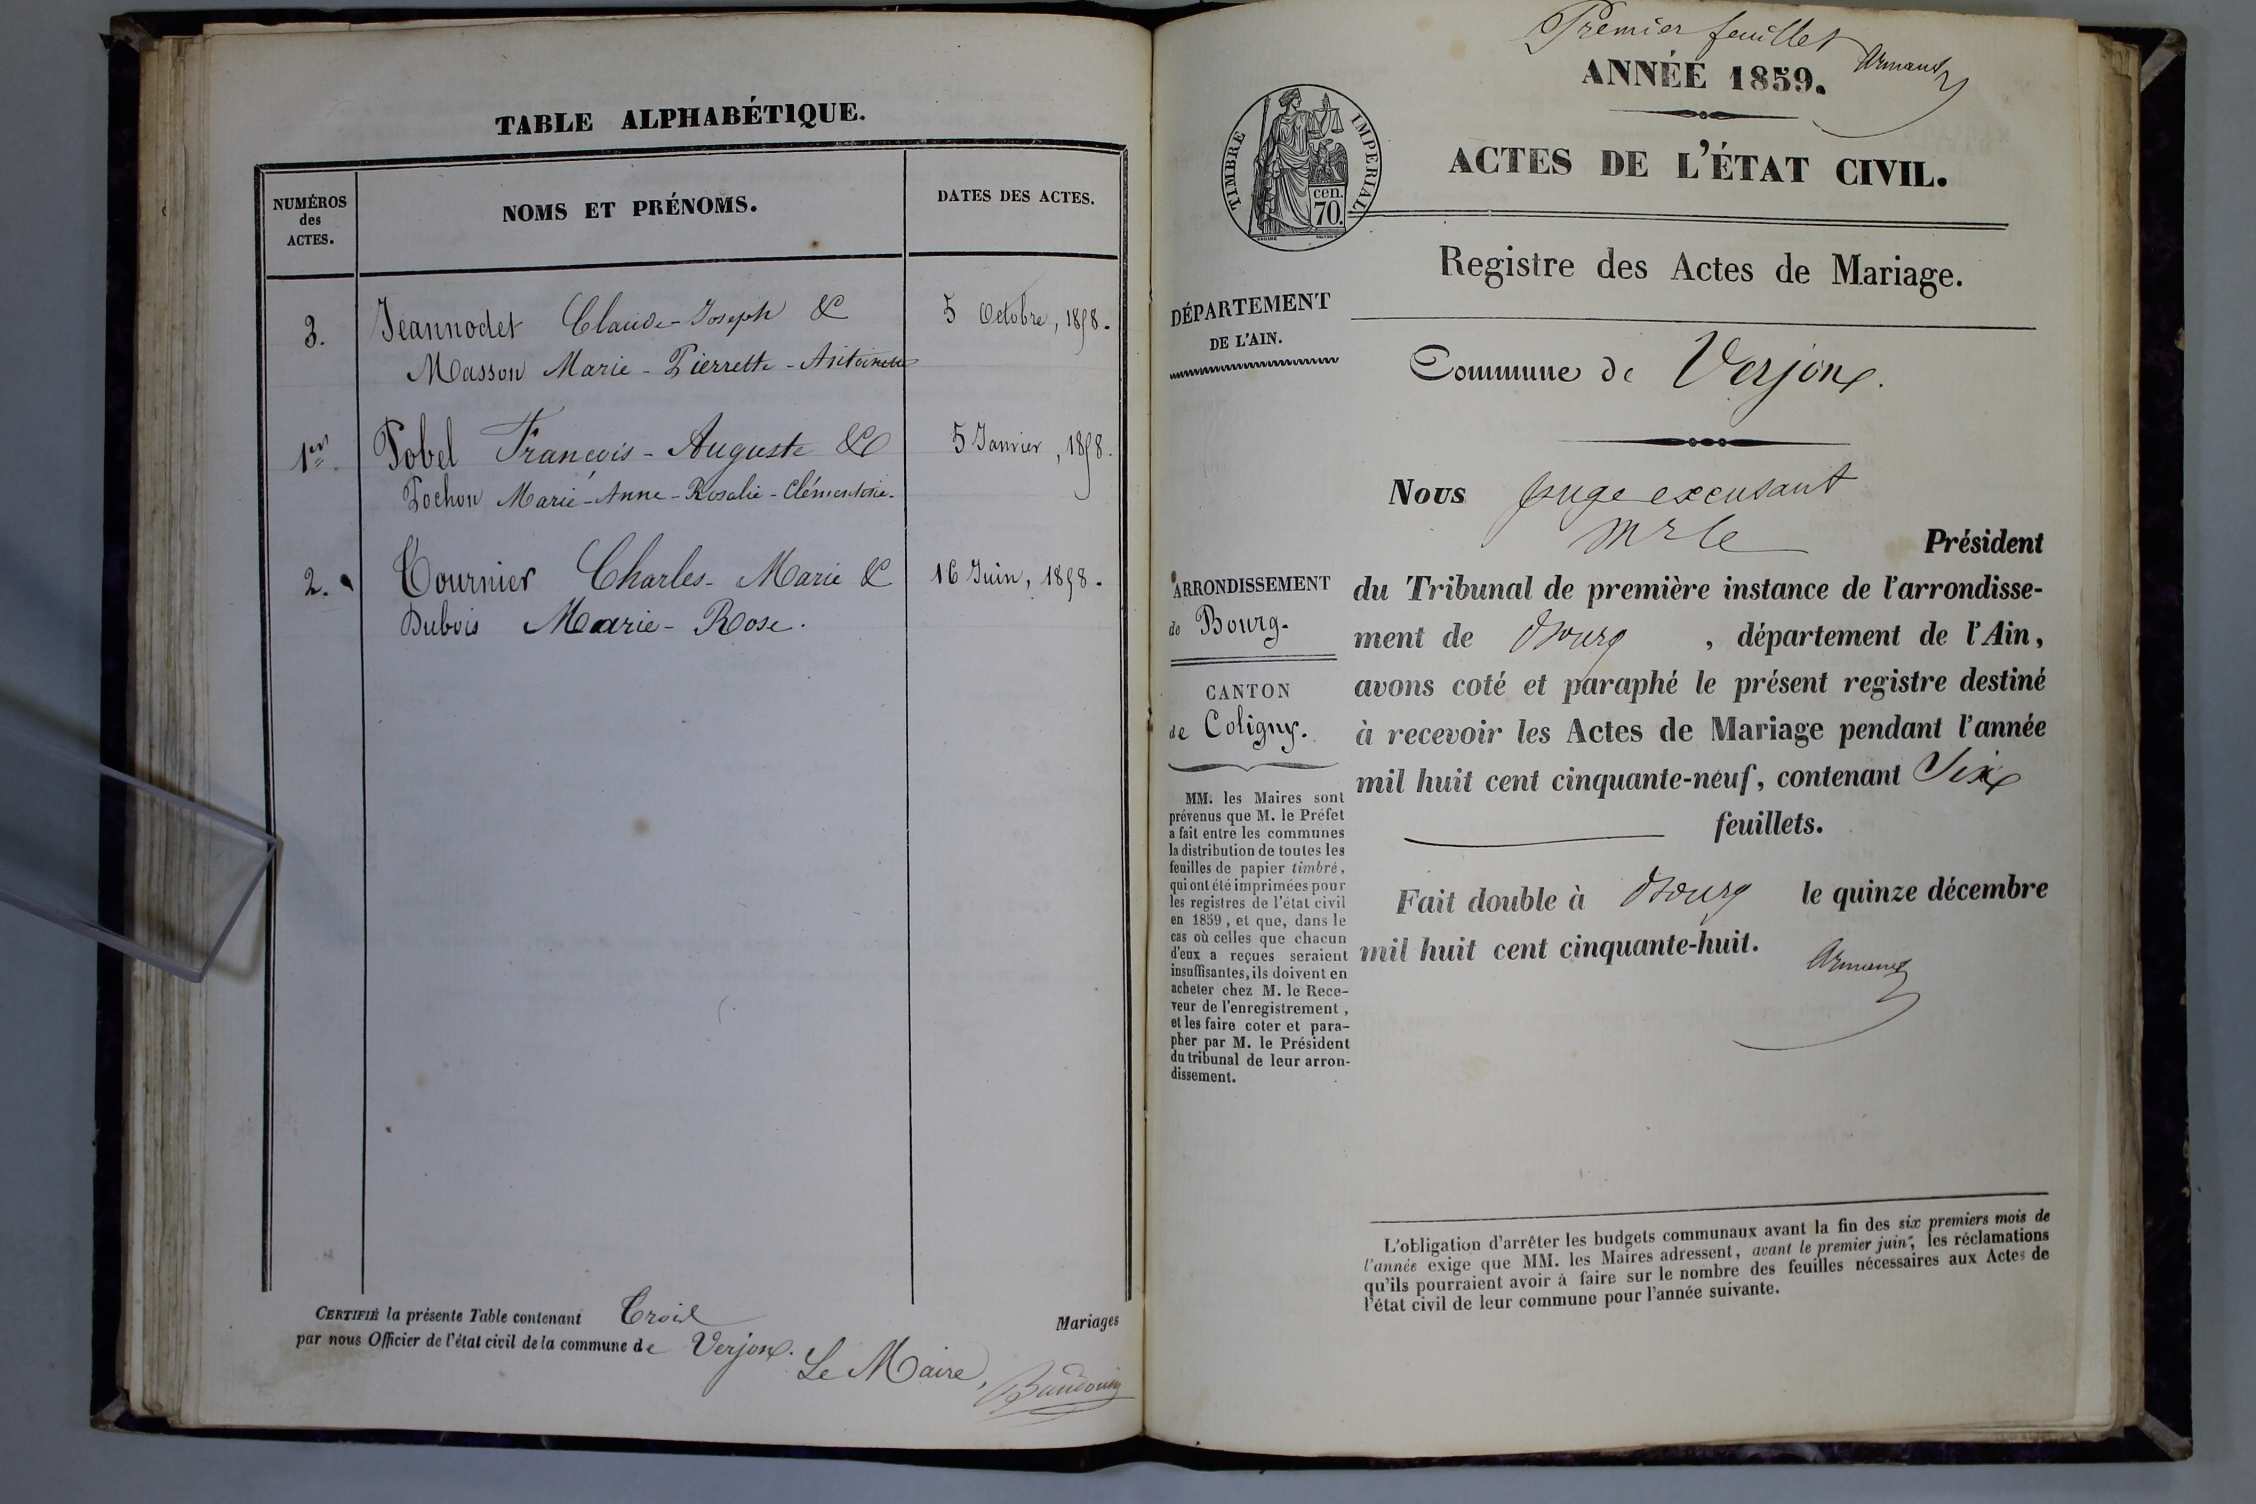 TABLE ALPHABÉTIQUE.
NUMÉROS
des
ACTES.
NOMS ET PRÉNOMS.
DATES DES ACTES.
3. Jeannodet Claude-Joseph & 5 Octobre, 1858.
Masson Marie-Pierrette-Antoinette
1er Pobel François-Auguste & 5 Janvier, 1858.
Pochon Marie-Anne-Rosalie-Clémentine.
2. Tournier Charles-Marie & 16 Juin, 1858.
Dubois Marie-Rose.
CERTIFIÉ la présente Table contenant Trois Mariages
par nous Officier de l'état civil de la commune de Verjon.
Le Maire,
Baudouin
Premier feuillet
Armand
ANNÉE 1859.
TIMBRE IMPERIAL
cen.
70.
ACTES DE L'ÉTAT CIVIL.
Registre des Actes de Mariage.
DÉPARTEMENT
DE L'AIN.
Commune de Verjon.
ARRONDISSEMENT
de Bourg.
CANTON
de Coligny.
MM. les Maires sont
prévenus que M. le Préfet
a fait entre les communes
la distribution de toutes les
feuilles de papier timbré,
qui ont été imprimées pour
les registres de l'état civil
en 1859, et que, dans le
cas où celles que chacun
d'eux a reçues seraient
insuffisantes, ils doivent en
acheter chez M. le Rece-
veur de l'enregistrement,
et les faire coter et para-
pher par M. le Président
du tribunal de leur arron-
dissement.
Nous juge excusant
Mr le Président
du Tribunal de première instance de l'arrondisse-
ment de Bourg, département de l'Ain,
avons coté et paraphé le présent registre destiné
à recevoir les Actes de Mariage pendant l'année
mil huit cent cinquante-neuf, contenant Six
feuillets.
Fait double à Bourg le quinze décembre
mil huit cent cinquante-huit.
Armand
L'obligation d'arrêter les budgets communaux avant la fin des six premiers mois de
l'année exige que MM. les Maires adressent, avant le premier juin, les réclamations
qu'ils pourraient avoir à faire sur le nombre des feuilles nécessaires aux Actes de
l'état civil de leur commune pour l'année suivante.